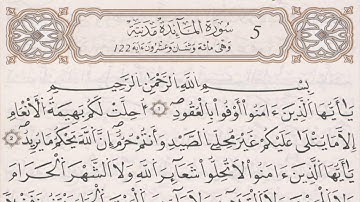 سورة المائدة مدنية 5
وهي مائة وثنتان وعشرون ءاية 122
بسم الله الرحمن الرحيم
يأيها الذين ءامنوا أوفوا بالعقود أحلت لكم بهيمة الأنعم
إلا ما يتلى عليكم غير محلي الصيد وأنتم حرم إن الله يحكم ما يريد
يأيها الذين ءامنوا لا تحلوا شعير الله ولا الشهر الحرام